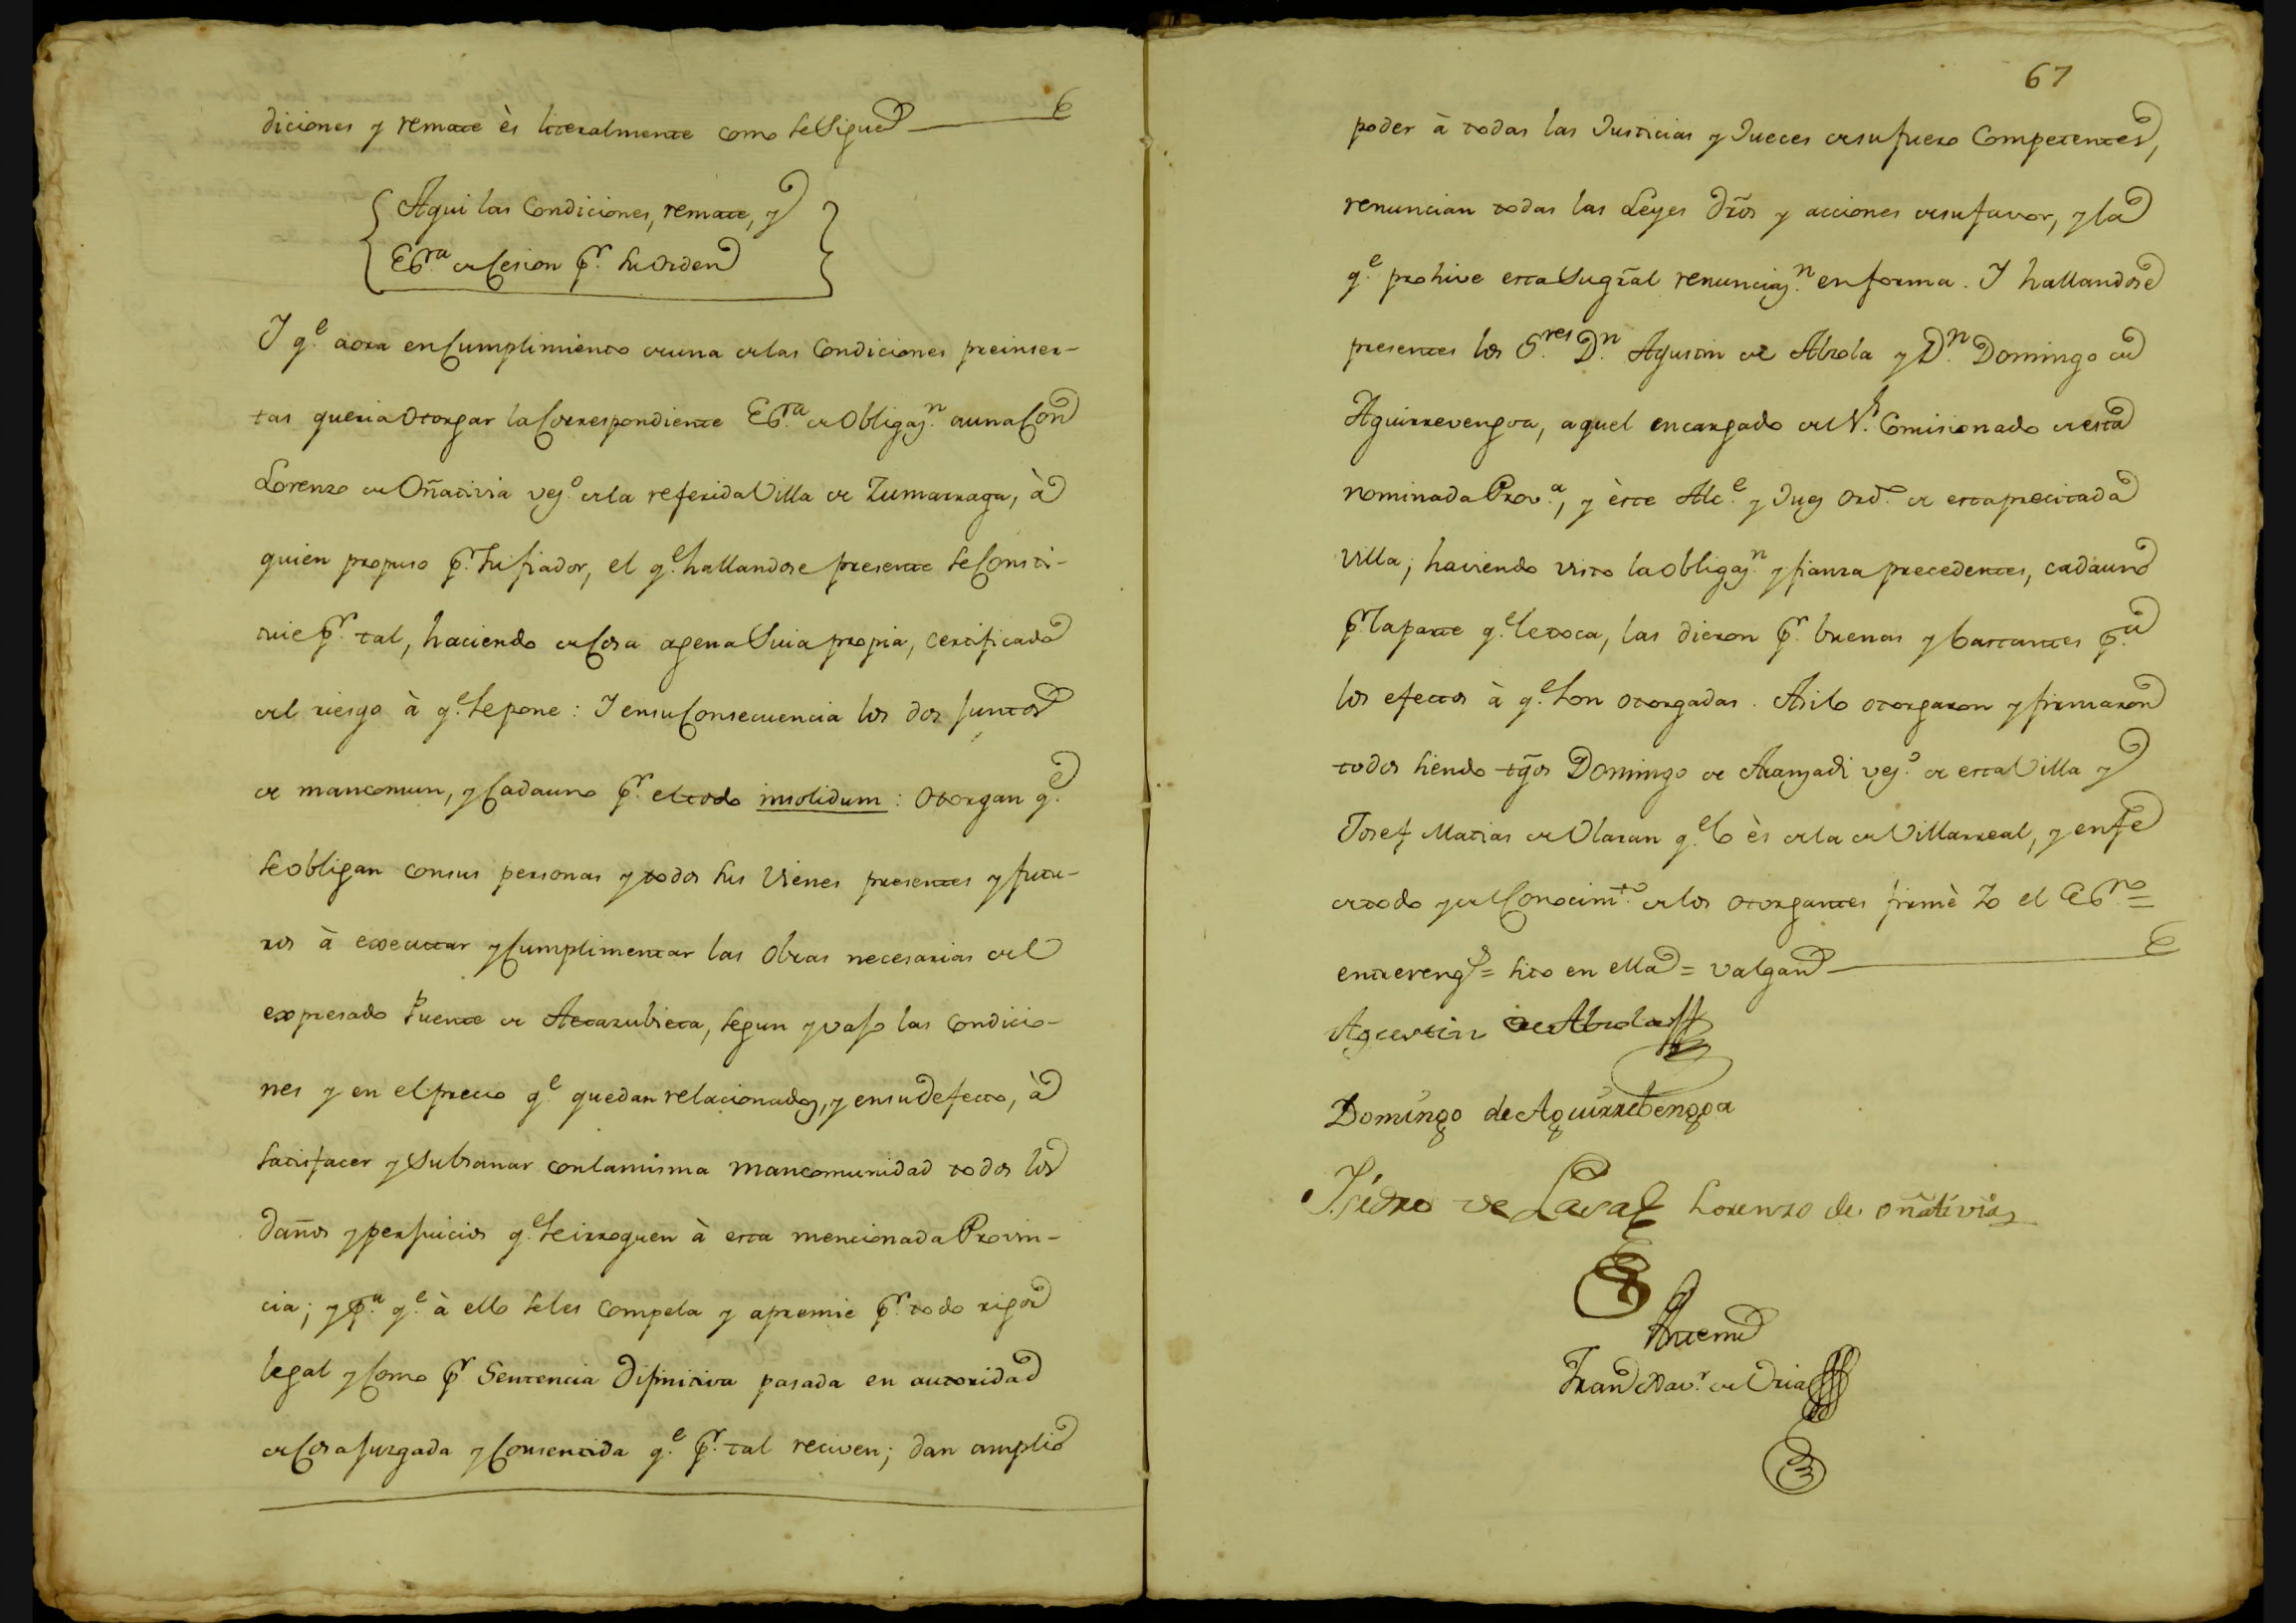 diciones y remate ès literalmente como se Sigue
Aqui las Condiciones, remate, y
Essra de Cesion pr. su orden
I qe. aora en Cumplimiento de una de las Condiciones preinser-
tas queria Otorgar la Correspondiente Essra. de Obligazn. a una Con
Lorenzo de Oñativia vezo. de la referida Villa de Zumarraga, à
quien propuso pr. su fiador, el qe. hallandose presente se Consti-
tuie pr. tal, haciendo de Cosa agena Suia propia, certificado
del riesgo à qe. se pone: I en su Consecuencia los dos juntos
de mancomun, y Cada uno pr. el todo insolidum: Otorgan qe.
se obligan con sus personas y todos sus Vienes presentes y futu-
ros à executar y Cumplimentar las Obras necesarias del
expresado Puente de Aetarubieta, segun y vajo las Condicio-
nes y en el precio qe. quedan relacionados, y en su defecto, à
satisfacer y Subsanar con la misma mancomunidad todos los
daños y perjuicios qe. se irroguen à esta mencionada Provin-
cia; y pa. qe. à ello se les Compela y apremie pr. todo rigor
legal y Como pr. Sentencia Difinitiva pasada en autoridad
de Cosa juzgada y Consentida qe. pr. tal reciven; dan amplio
67
poder à todas las Justicias y Jueces de su fuero Competentes,
renuncian todas las Leyes Dros y acciones de su favor, y la
qe. prohive esta Su gral renunciazn. en forma. I hallandose
presentes los Sres. Dn. Agustin de Abrola y Dn. Domingo de
Aguirrevengoa, aquel encargado del Sr. Comisionado de esta
nominada Prova., y èste Alce. y Juez Ordo. de esta precitada
Villa; haviendo visto la obligazn. y fianza precedentes, cada uno
pr. la parte qe. le toca, las dieron pr. buenas y bastantes pa.
los efectos à qe. son otorgadas. Asi lo otorgaron y firmaron
todos siendo tgos Domingo de Aranzadi vezo. de esta Villa y
Josef Matias de Olaran qe. lo ès de la de Villarreal, y en fe
de todo y del Conocimto. de los otorgantes firmè Yo el Essno =
entrerengs = sito en ella = valgan
Agustin de Abrola
Domingo de Aguirrebengoa
Isidro de Lasa Lorenzo de oñativia
Antemi
Fran Xavr. de Oria